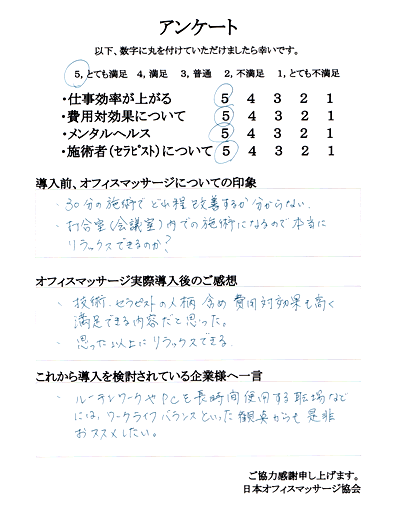 アンケート
以下、数字に丸を付けていただけましたら幸いです。
5, とても満足 4, 満足 3, 普通 2, 不満足 1, とても不満足
・仕事効率が上がる 5 4 3 2 1
・費用対効果について 5 4 3 2 1
・メンタルヘルス 5 4 3 2 1
・施術者(セラピスト)について 5 4 3 2 1
導入前、オフィスマッサージについての印象
・30分の施術でどれ程改善するか分からない。
・打合室(会議室)内での施術になるので本当に
リラックスできるのか?
オフィスマッサージ実際導入後のご感想
・技術、セラピストの人柄含め費用対効果も高く
満足できる内容だと思った。
・思った以上にリラックスできる
これから導入を検討されている企業様へ一言
・ルーチンワークやPCを長時間使用する職場など
には、ワークライフバランスといった観点からも是非
おススメしたい。
ご協力感謝申し上げます。
日本オフィスマッサージ協会